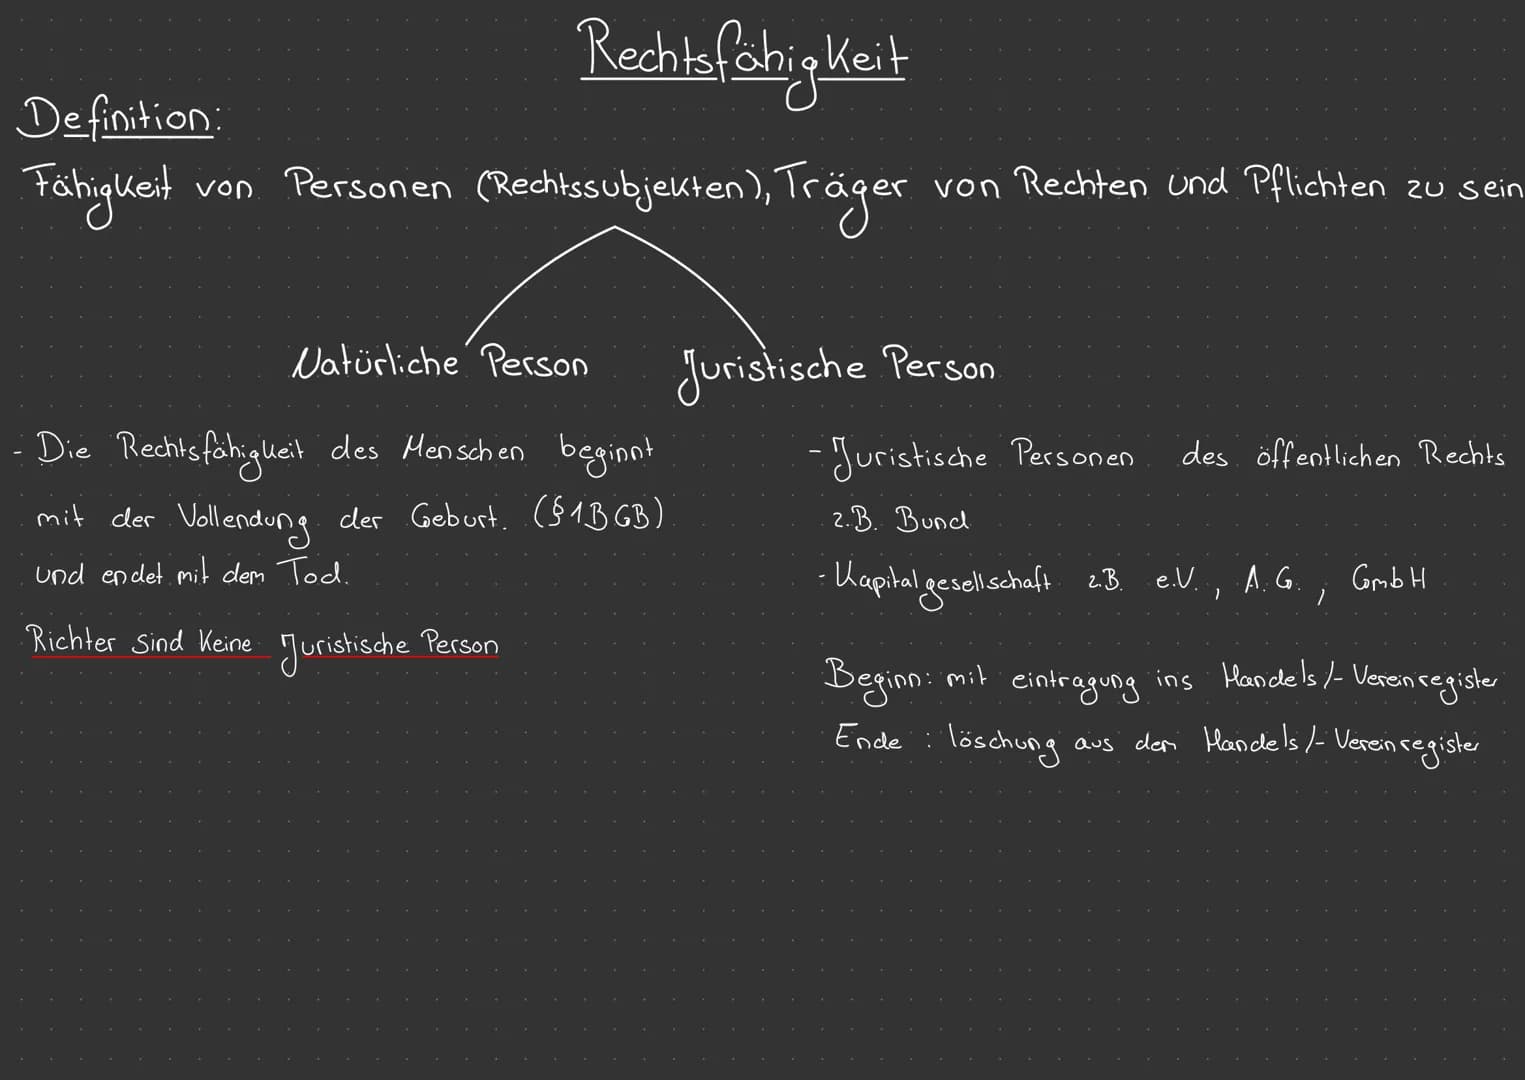 Rechtsfähigkeit
Definition:
Fähigkeit von Personen (Rechtssubjekten), Träger von Rechten und Pflichten zu sein
Natürliche Person
Juristische Person
- Die Rechtsfähigkeit des Menschen beginnt
mit der Vollendung der Geburt. (§1BGB)
und endet mit dem Tod.
Richter sind keine Juristische Person
- Juristische Personen des öffentlichen Rechts
z.B. Bund
- Kapitalgesellschaft z.B. e.V., A.G., GmbH
Beginn: mit eintragung ins Handels/- Vereinregister
Ende : löschung aus dem Handels/- Vereinregister